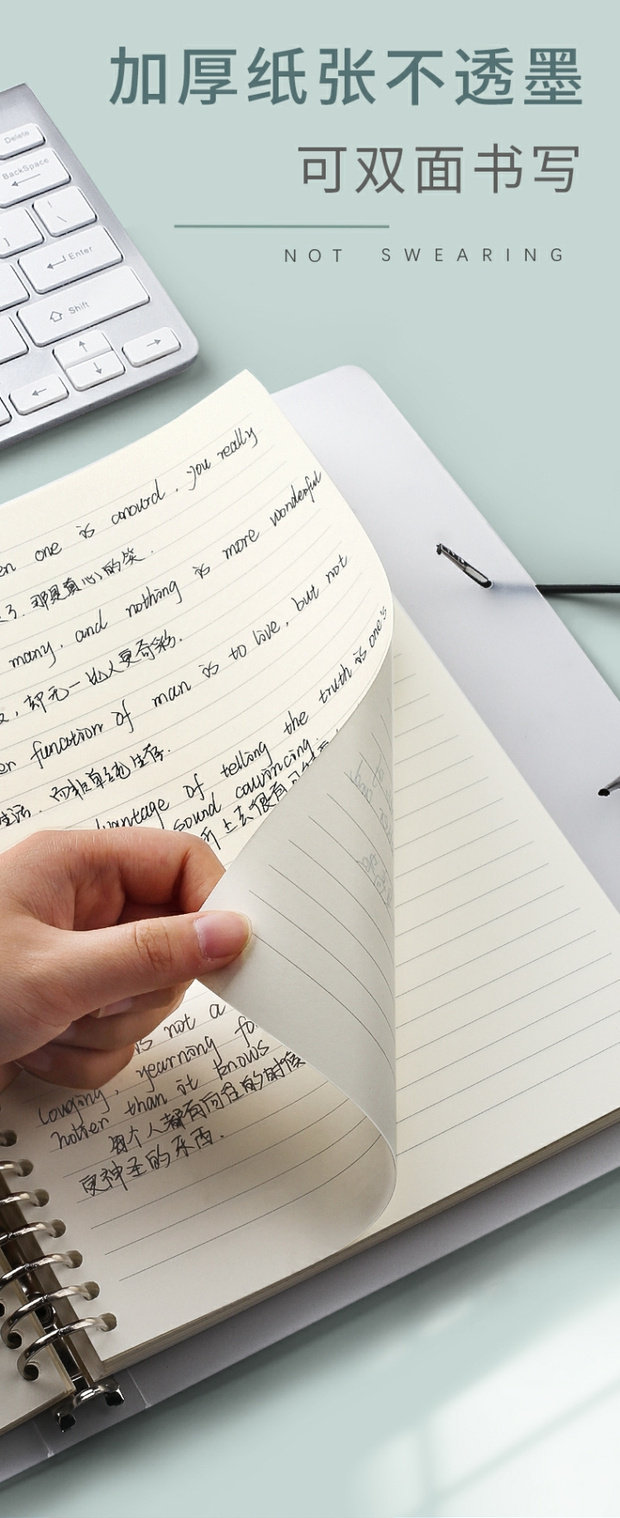 加厚纸张不透墨
可双面书写
NOT SWEARING
Delete
BackSpace
Enter
Shift
en one is around, you really
那是真心的笑.
many, and nothing is more wonderful
却无一比人更奇妙.
function of man is to live, but not
生活, 而非单纯生存.
vantage of telling the truth is one's
sound convincing.
听上去很有可
is not a
yearning fo
hotter than it knows
每个人都有向往的时候
更神圣的东西.